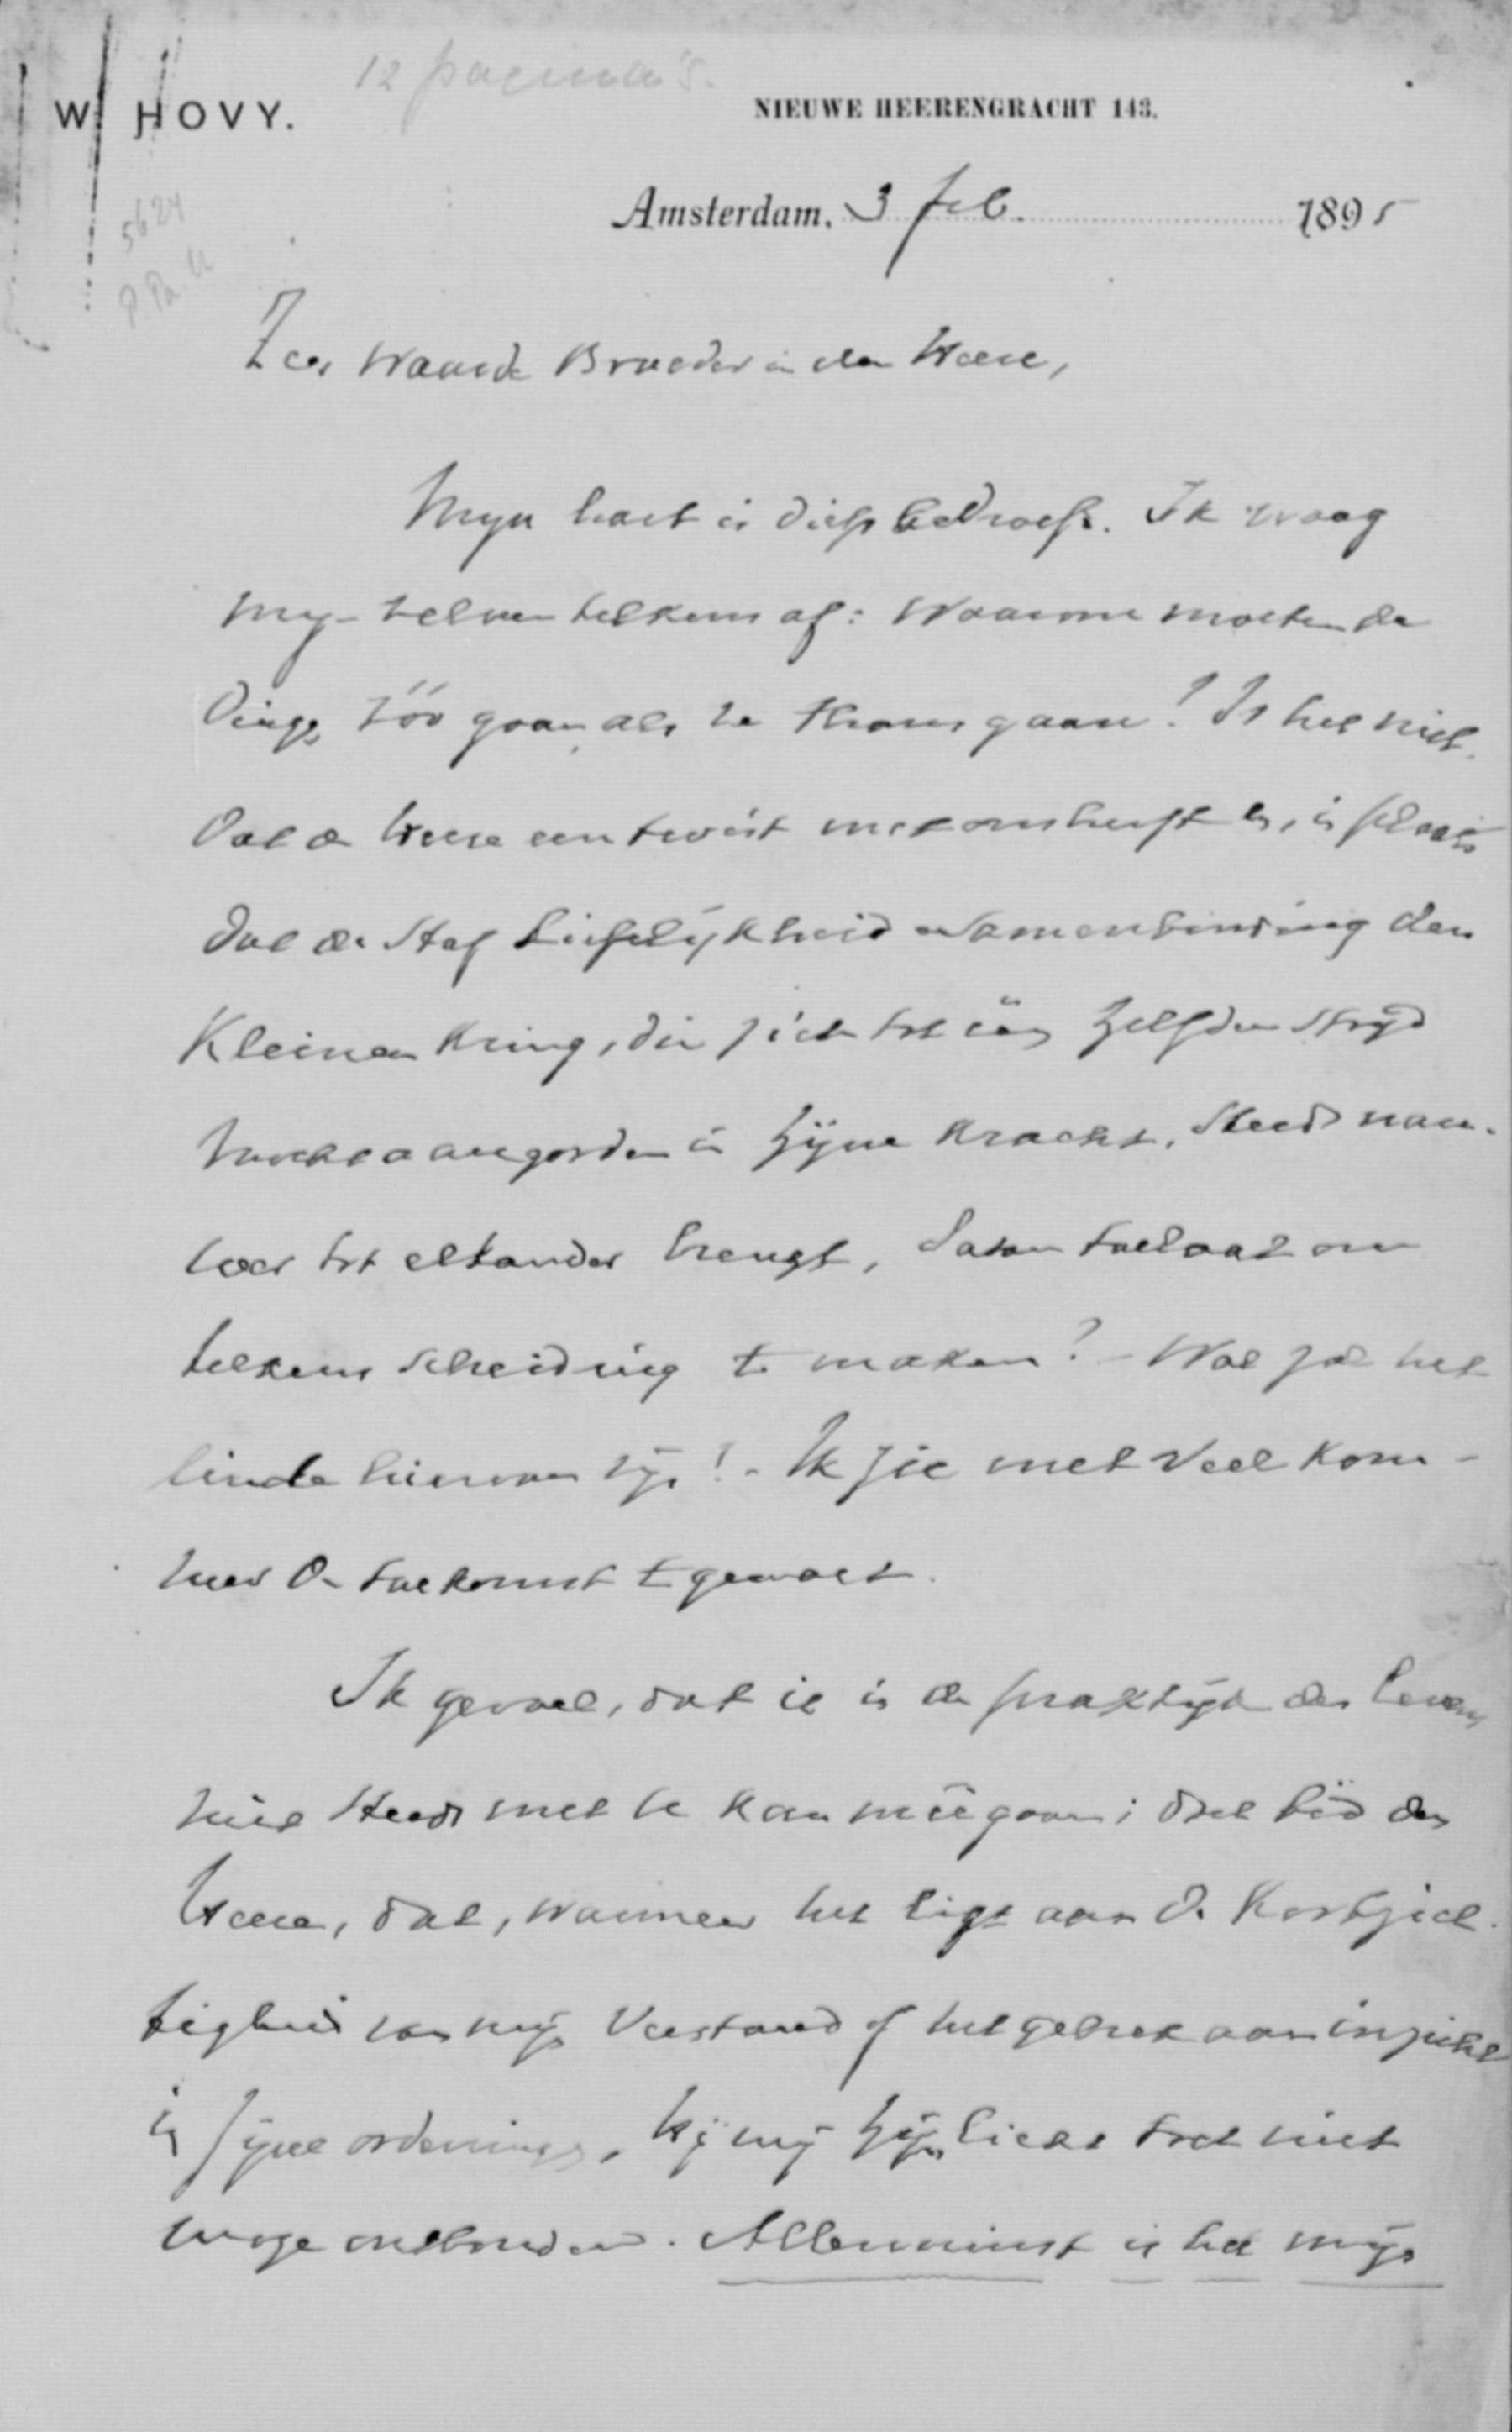 12 pagina's.
W. HOVY.
NIEUWE HEERENGRACHT 143.
Amsterdam, 3 Feb. 1895
5624
Zeer Waarde Broeder in den Heere,
Mijn hart is diep bedroefd. Ik vraag
mij-zelven telkens af: Waarom moeten de
dingen zóó gaan als ze thans gaan? Is het niet
dat de Heere een twist met ons heeft en, in plaats
dat de staf Liefelijkheid en Samenbinding den
Kleinen Kring, die zich tot één zelfden strijd
mocht aangorden in Zijne kracht, steeds nau-
wer tot elkander brengt, Satan toelaat om
telkens scheiding te maken? - Wat zal het
einde hiervan zijn! - Ik zie met veel kom-
mer de toekomst tegemoet.
Ik gevoel, dat ik in de praktijk des levens
niet steeds met U kan meegaan; doch bid den
Heere, dat, wanneer het ligt aan de kortzich-
tigheid van mijn verstand of het gebrek aan inzicht
in zijne ordeningen, Hij mij Zijn licht toch niet
moge onthouden. Allerminst is het mijn